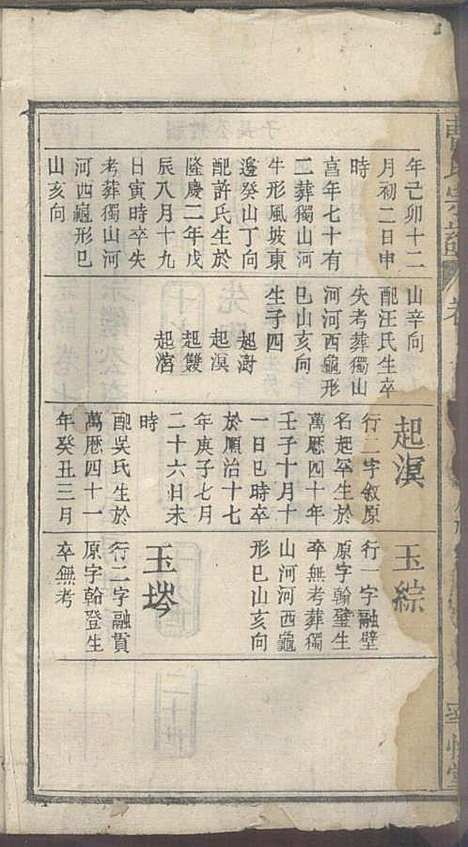 年己卯十二
月初二日申
時
享年七十有
二葬獨山河
牛形風坡東
邊癸山丁向
配許氏生於
隆慶二年戊
辰八月十九
日寅時卒失
考葬獨山河
河西龜形巳
山亥向
山辛向
配汪氏生卒
失考葬獨山
河河西龜形
巳山亥向
生子四
起澍
起溟
起雙
起滘
起溟
行二字敘原
名起罕生於
萬厯四十年
壬子十月十
一日巳時卒
於順治十七
年庚子七月
二十六日未
時
配吳氏生於
萬厯四十一
年癸丑三月
玉綜
行一字融壁
原字翰璧生
卒無考葬獨
山河河西龜
形巳山亥向
玉墧
行二字融貫
原字翰登生
卒無考
氏宗譜
卷